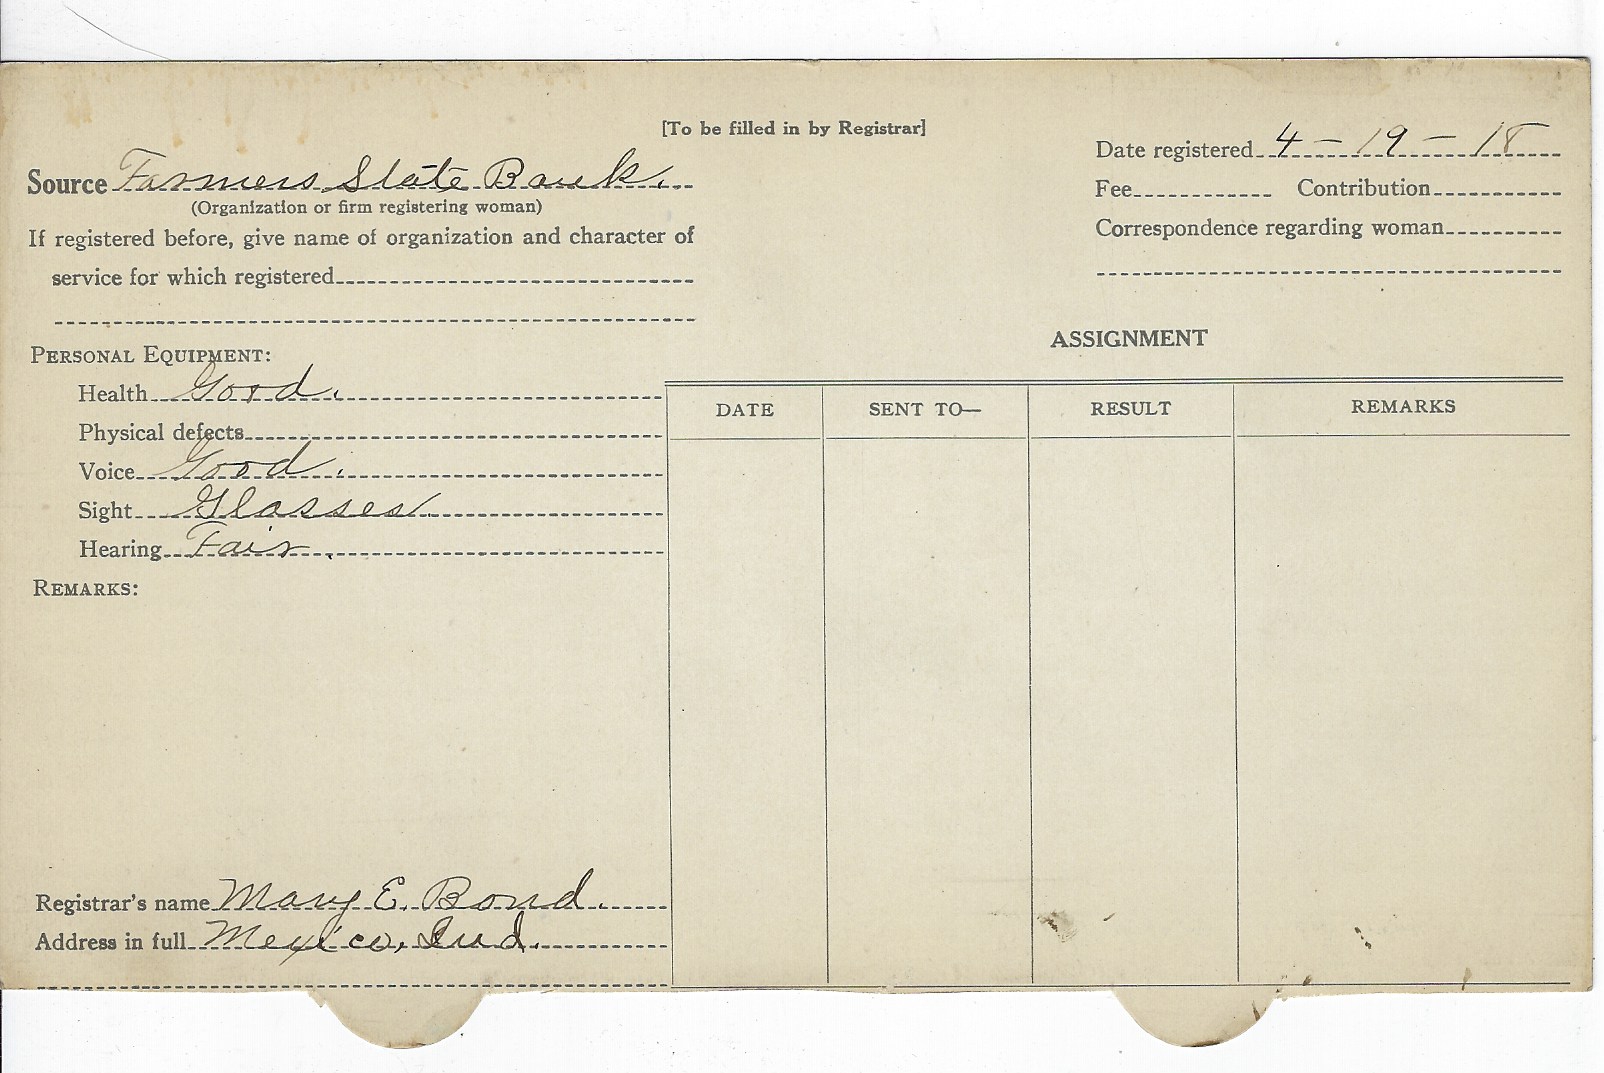 [To be filled in by Registrar]
Source Farmers State Bank.
(Organization or firm registering woman)
If registered before, give name of organization and character of
service for which registered
Date registered 4-19-18
Fee Contribution
Correspondence regarding woman
PERSONAL EQUIPMENT:
Health Good.
Physical defects
Voice Good.
Sight Glasses
Hearing Fair.
REMARKS:
ASSIGNMENT
DATE SENT TO— RESULT REMARKS
Registrar's name Mary E. Bond.
Address in full Mexico, Ind.